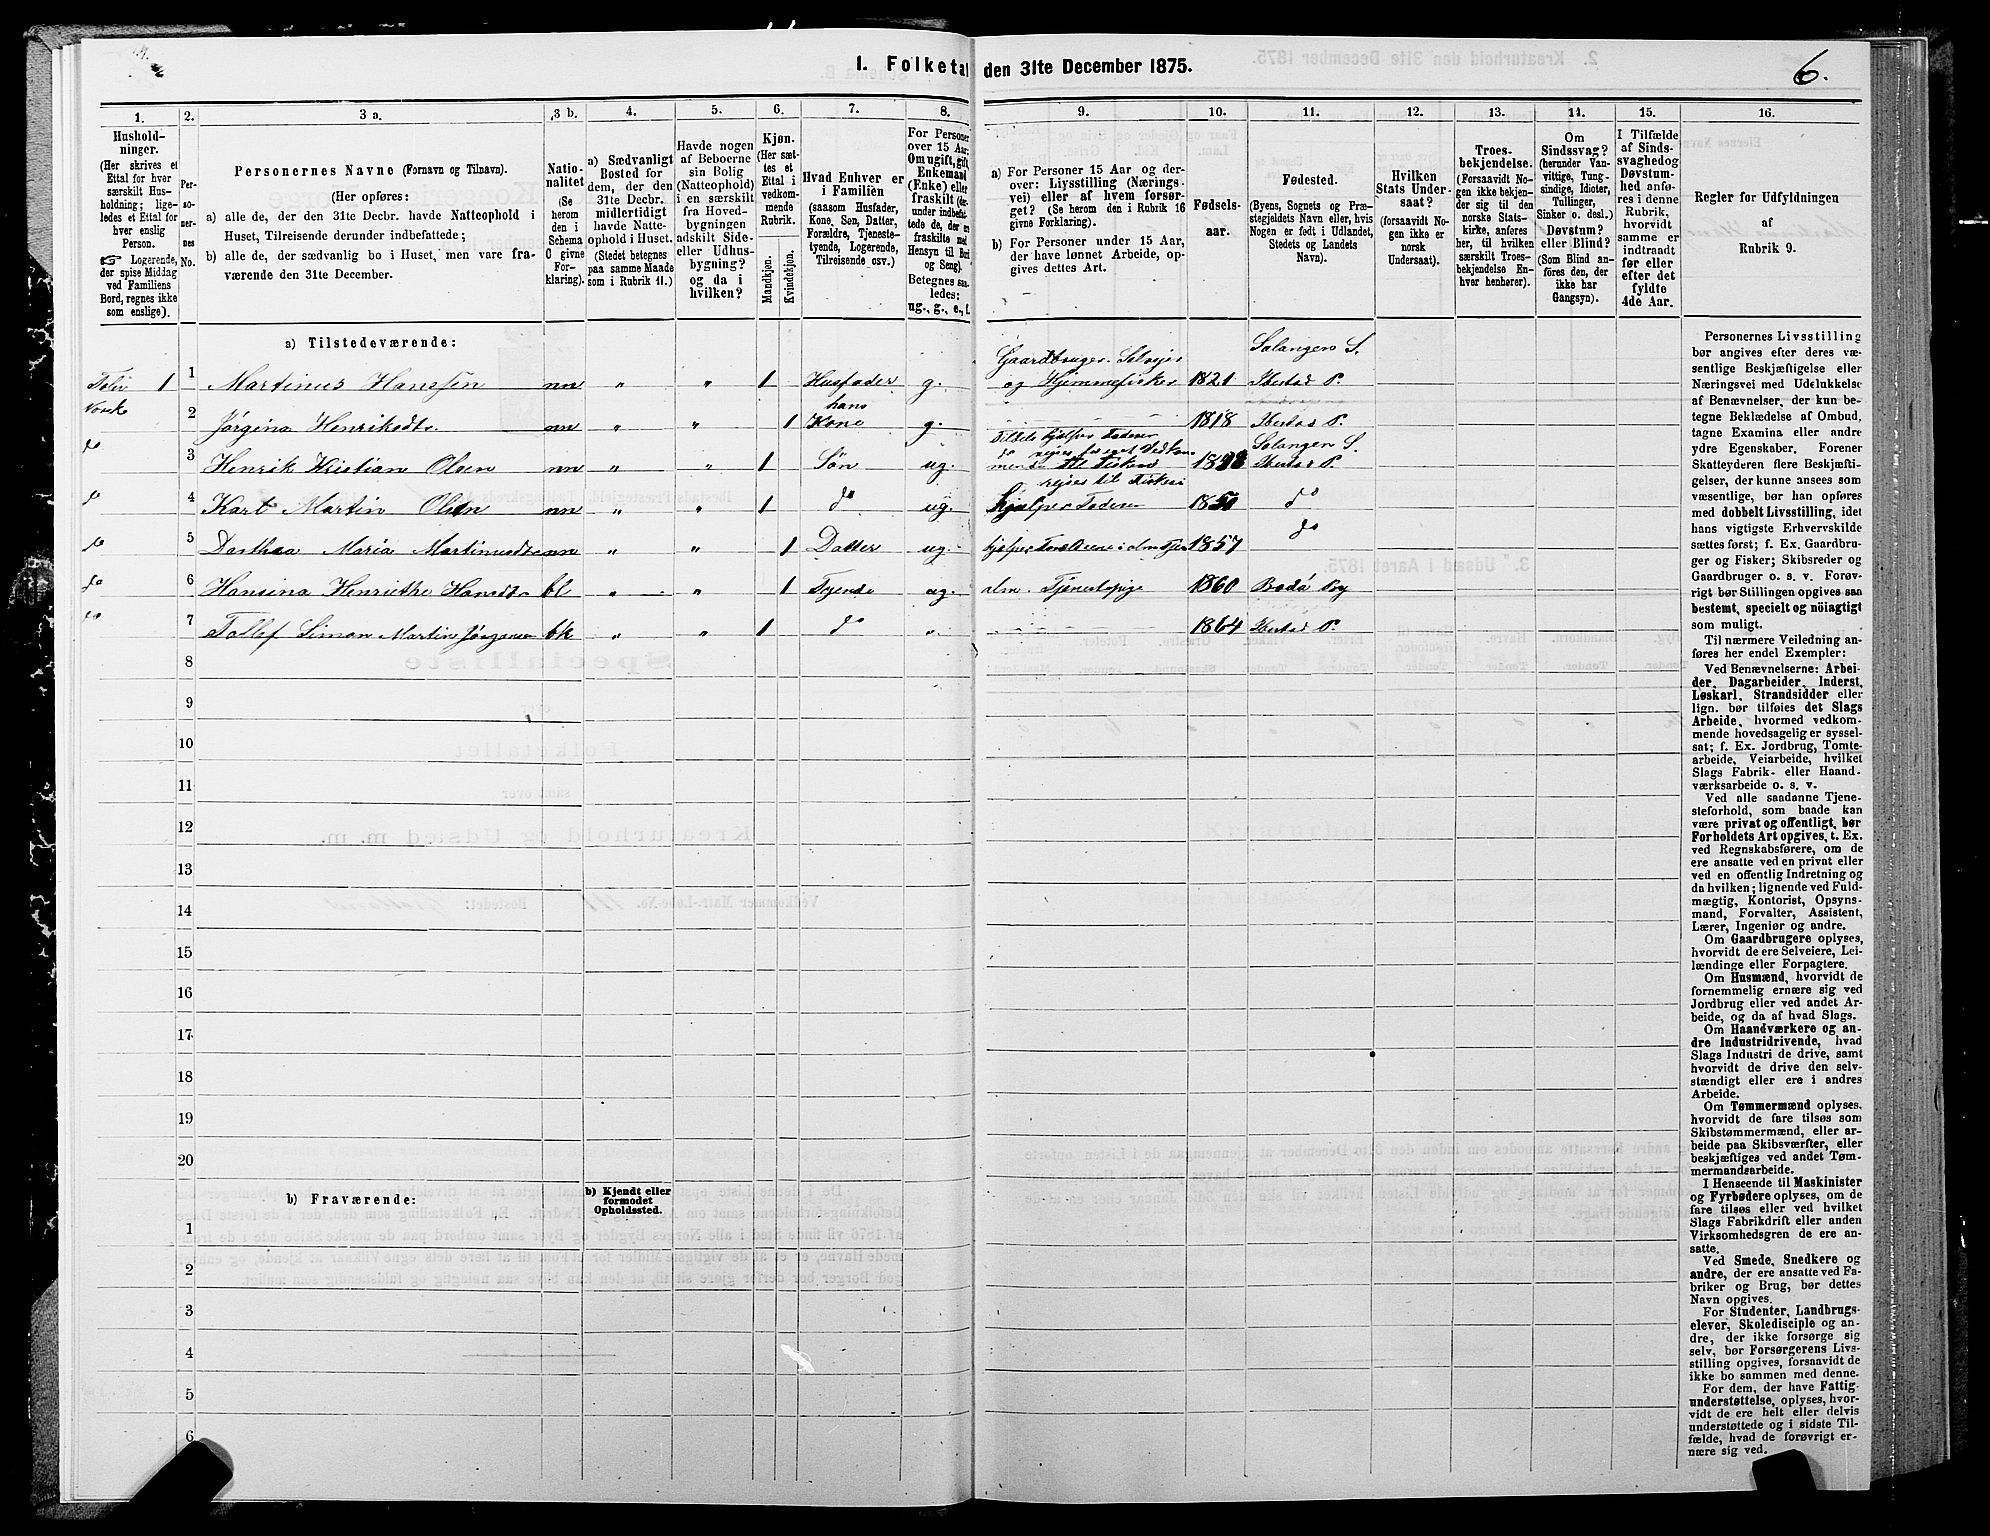 1. Folketal den 31te December 1875.
6.
1.
Hushold-
ninger.
(Her skrives et
Ettal for hver
særskilt Hus-
holdning; lige-
ledes et Ettal for
hver enslig
Person.
☞ Logerende,
der spise Middag
ved Familiens
Bord, regnes ikke
som enslige).
2.
Per-
so-
ner-
nes
No.
3 a.
Personernes Navne (Fornavn og Tilnavn).
(Her opføres:
a) alle de, der den 31te Decbr. havde Natteophold i
Huset, Tilreisende derunder indbefattede;
b) alle de, der sædvanlig bo i Huset, men vare fra-
værende den 31te December.
3 b.
Natio-
nalitet
(Se
herom
den i
Schema
C givne
For-
klaring).
4.
a) Sædvanligt
Bosted for
dem, der den
31te Decbr.
midlertidigt
havde Natte-
ophold i Huset.
(Stedet betegnes
paa samme Maade
som i Rubrik 11.)
5.
Havde nogen
af Beboerne
sin Bolig
(Natteophold)
i en særskilt
fra Hoved-
bygningen
adskilt Side-
eller Udhus-
bygning?
og da i
hvilken?
6.
Kjøn.
(Her sæt-
tes et
Ettal i
vedkom-
mende
Rubrik.
Mandkjøn.
Kvindekjøn.
7.
Hvad Enhver er
i Familien
(saasom Husfader,
Kone, Søn, Datter,
Forældre, Tjeneste-
tyende, Logerende,
Tilreisende osv.)
8.
For Personer
over 15 Aar:
Om ugift, gift,
Enkemand
(Enke) eller
fraskilt
Betegnes saa-
ledes:
ug., g., e., f.
9.
a) For Personer 15 Aar og der-
over: Livsstilling (Nærings-
vei) eller af hvem forsør-
get? (Se herom den i Rubrik 16
givne Forklaring.)
b) For Personer under 15 Aar,
der have lønnet Arbeide, op-
gives dettes Art.
10.
Fødsels-
aar.
11.
Fødested.
(Byens, Sognets og Præ-
stegjeldets Navn eller, hvis
Nogen er født i Udlandet,
Stedets og Landets
Navn).
12.
Hvilken
Stats Under-
saat?
(forsaavidt No-
gen ikke er
norsk
Undersaat).
13.
Troes-
bekjendelse.
(Forsaavidt No-
gen ikke bekjen-
der sig til den
norske Stats-
kirke, anføres
her, til hvilken
særskilt Troes-
bekjendelse En-
hver henhører).
14.
Om
Sindssvag?
(herunder Van-
vittige, Tung-
sindige, Idioter,
Tullinger,
Sinker o. desl.)
Døvstum?
eller Blind?
(Som Blind an-
føres den, der
ikke har
Gangsyn).
15.
I Tilfælde
af Sinds-
svaghed og
Døvstum-
hed anfø-
res i denne
Rubrik,
hvorvidt
samme er
indtraadt
før eller
efter det
fyldte
4de Aar.
16.
Regler for Udfyldningen
af
Rubrik 9.
a) Tilstedeværende:
1 1 Martinus Hanssen nn „ „ 1 Husfader g. Gaardbruger. Selveier og Hjemmefisker 1821 Salangen S. Ibestad P.
Norsk 2 Jørgina Henriksdtr. nn „ „ 1 hans Kone g. 1818 Ibestad P.
do 3 Henrik Kristian Olsen nn „ „ 1 Søn ug. Salangen S. Ibestad P.
do 4 Kart Martin Olsen nn „ „ 1 do ug. hjælper Faderen 1850 do
do 5 Dorthea Maria Martinusdtr nn „ „ 1 Datter ug. 1857 do
do 6 Hansina Henriethe Hansdtr bl „ „ 1 Tyende ug. alm. Tjenestepige 1860 Bodø By
do 7 Tollef Simon Martin Jørgensen bk „ „ 1 do „ 1864 Ibestad P.
8
9
10
11
12
13
14
15
16
17
18
19
20
b) Fraværende:
b) Kjendt eller
formodet
Opholdssted.
1
2
3
4
5
6
Personernes Livsstilling
bør angives efter deres væ-
sentlige Beskjæftigelse eller
Næringsvei med Udelukkelse
af Benævnelser, der kun be-
tegne Beklædelse af Ombud,
tagne Examina eller andre
ydre Egenskaber. Forener
Skatteyderen flere Beskjæfti-
gelser, der kunne ansees som
væsentlige, bør han opføres
med dobbelt Livsstilling, idet
hans vigtigste Erhvervskilde
sættes først; f. Ex. Gaardbru-
ger og Fisker; Skibsreder og
Gaardbruger o. s. v. Forøv-
rigt bør Stillingen opgives saa
bestemt, specielt og nöiagtigt
som muligt.
Til nærmere Veiledning an-
føres her endel Exempler:
Ved Benævnelserne: Arbei-
der, Dagarbeider, Inderst,
Løskarl, Strandsidder eller
lign. bør tilføies det Slags
Arbeide, hvormed vedkom-
mende hovedsagelig er syssel-
sat; f. Ex. Jordbrug, Tomte-
arbeide, Veiarbeide, hvilket
Slags Fabrik- eller Haand-
værksarbeide o. s. v.
Ved alle saadanne Tjene-
steforhold, som baade kan
være privat og offentligt, bør
Forholdets Art opgives, t. Ex.
ved Regnskabsførere, om de
ere ansatte ved en privat eller
ved en offentlig Indretning og
da hvilken; lignende ved Fuld-
mægtig, Kontorist, Opsyns-
mand, Forvalter, Assistent,
Lærer, Ingeniør og andre.
Om Gaardbrugere oplyses,
hvorvidt de ere Selveiere, Lei-
lændinge eller Forpagtere.
Om Husmænd, hvorvidt de
fornemmelig ernære sig ved
Jordbrug eller ved andet Ar-
beide, og da af hvad Slags.
Om Haandværkere og an-
dre Industridrivende, hvad
Slags Industri de drive, samt
hvorvidt de drive den selv-
stændigt eller ere i andres
Arbeide.
Om Tømmermænd oplyses,
hvorvidt de fare tilsøs som
Skibstømmermænd, eller ar-
beide paa Skibsværfter, eller
beskjæftiges ved andet Tøm-
mermandsarbeide.
I Henseende til Maskinister
og Fyrbødere oplyses, om de
fare tilsøs eller ved hvilket
Slags Fabrikdrift eller anden
Virksomhedsgren de ere an-
satte.
Ved Smede, Snedkere og
andre, der ere ansatte ved Fa-
briker og Brug, bør dettes
Navn opgives.
For Studenter, Landbrugs-
elever, Skoledisciple og an-
dre, der ikke forsørge sig
selv, bør Forsørgerens Livs-
stilling opgives, forsaavidt de
ikke bo sammen med denne.
For dem, der have Fattig-
understøttelse, oplyses, hvor-
vidt de ere helt eller delvis
understøttede og i sidste Til-
fælde, hvad de forøvrigt er-
nære sig ved.